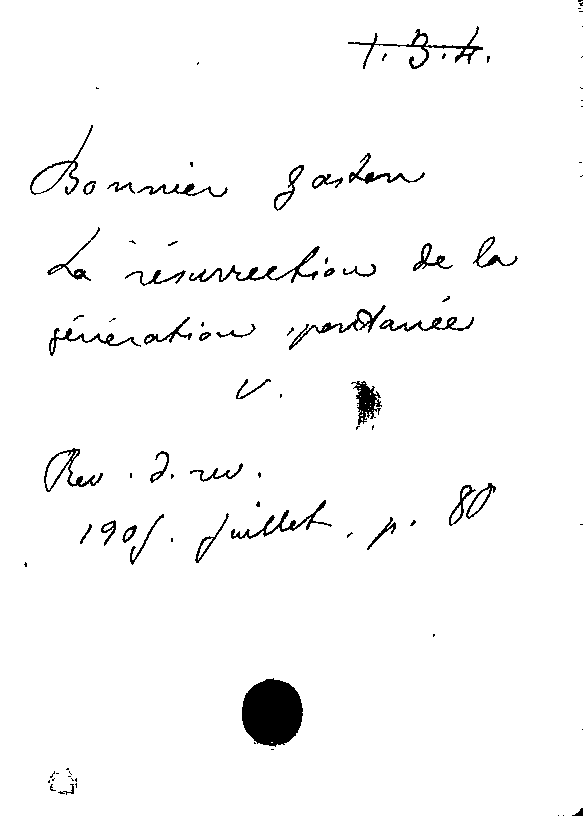 1.3.4.
Bonnier Gaston
La résurrection de la
génération spontanée
V.
Rev. d. rev.
1905. juillet. p. 80